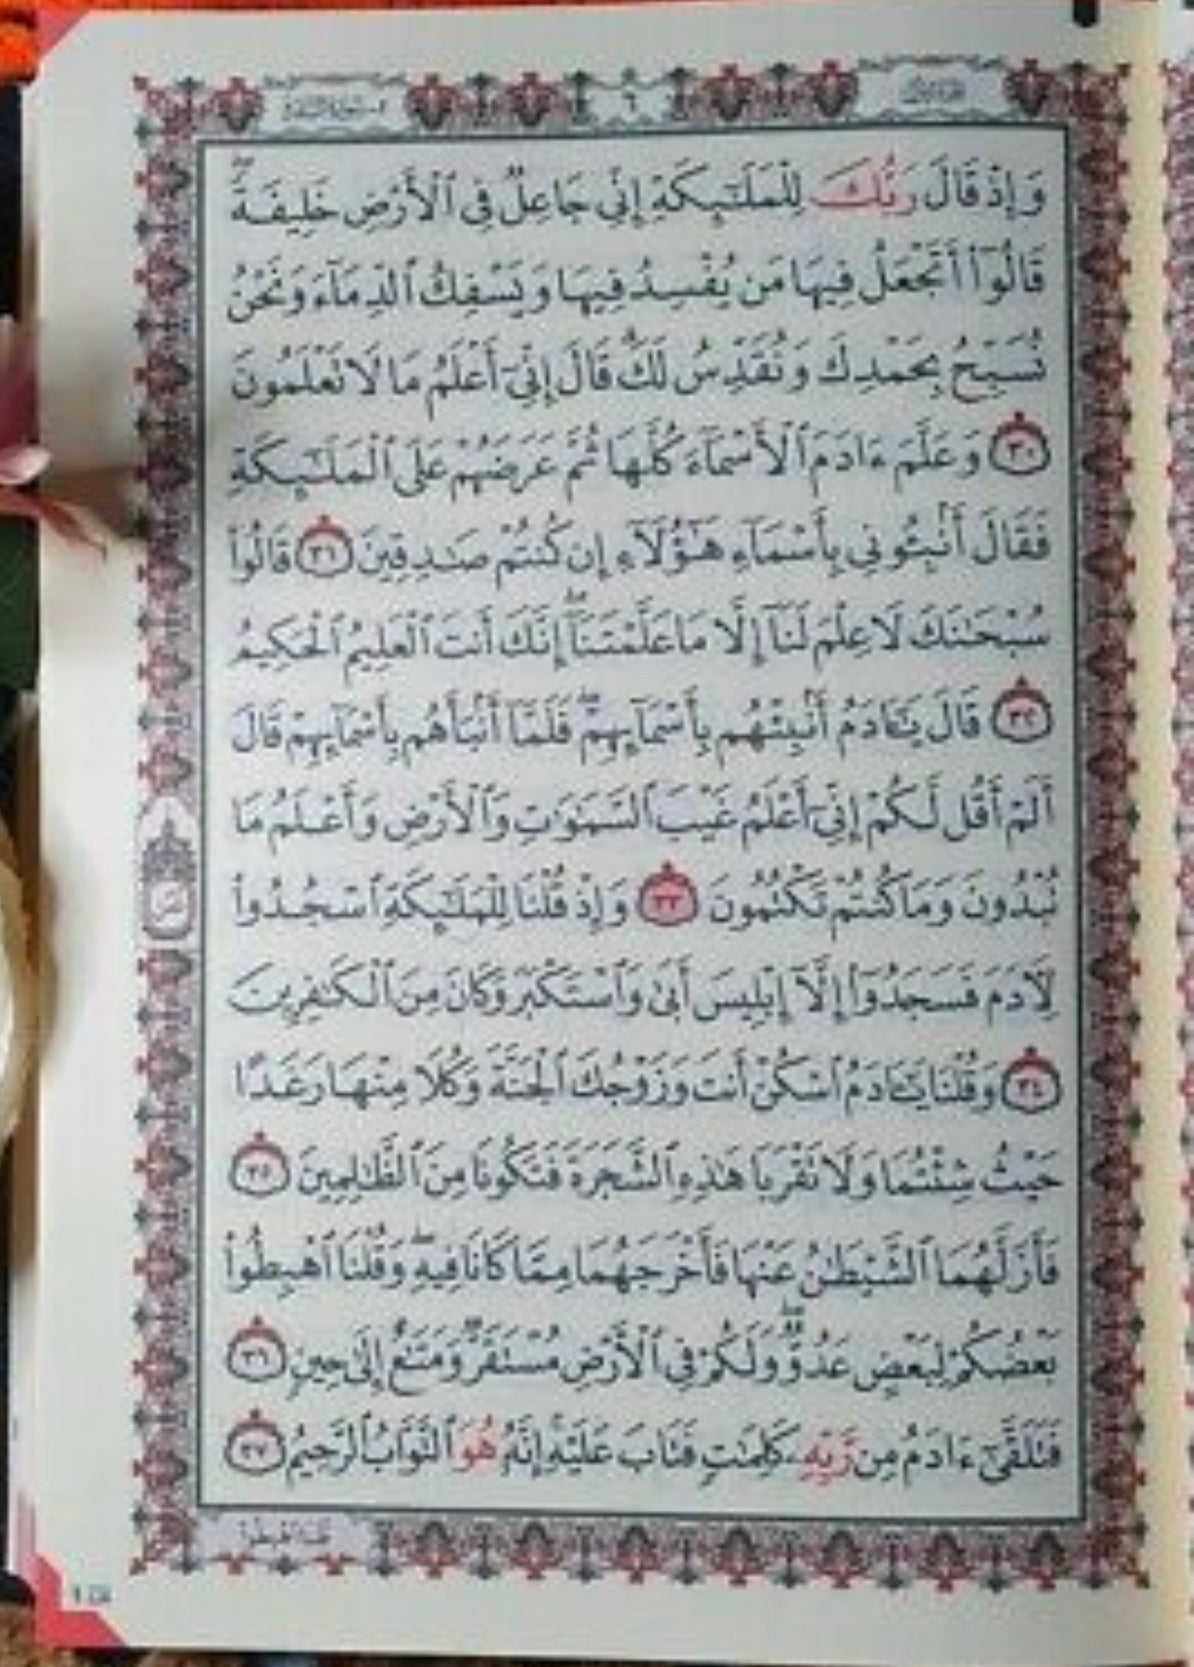 ٢- سورة البقرة ٦ الجزء الأول
وَإِذْ قَالَ رَبُّكَ لِلْمَلَـٰٓئِكَةِ إِنِّي جَاعِلٌ فِي ٱلْأَرْضِ خَلِيفَةً ۖ
قَالُوٓا۟ أَتَجْعَلُ فِيهَا مَن يُفْسِدُ فِيهَا وَيَسْفِكُ ٱلدِّمَآءَ وَنَحْنُ
نُسَبِّحُ بِحَمْدِكَ وَنُقَدِّسُ لَكَ ۖ قَالَ إِنِّيٓ أَعْلَمُ مَا لَا تَعْلَمُونَ
٣٠ وَعَلَّمَ ءَادَمَ ٱلْأَسْمَآءَ كُلَّهَا ثُمَّ عَرَضَهُمْ عَلَى ٱلْمَلَـٰٓئِكَةِ
فَقَالَ أَنۢبِـُٔونِي بِأَسْمَآءِ هَـٰٓؤُلَآءِ إِن كُنتُمْ صَـٰدِقِينَ ٣١ قَالُوا۟
سُبْحَـٰنَكَ لَا عِلْمَ لَنَآ إِلَّا مَا عَلَّمْتَنَآ ۖ إِنَّكَ أَنتَ ٱلْعَلِيمُ ٱلْحَكِيمُ
٣٢ قَالَ يَـٰٓـَٔادَمُ أَنۢبِئْهُم بِأَسْمَآئِهِمْ ۖ فَلَمَّآ أَنۢبَأَهُم بِأَسْمَآئِهِمْ قَالَ
أَلَمْ أَقُل لَّكُمْ إِنِّيٓ أَعْلَمُ غَيْبَ ٱلسَّمَـٰوَٰتِ وَٱلْأَرْضِ وَأَعْلَمُ مَا
تُبْدُونَ وَمَا كُنتُمْ تَكْتُمُونَ ٣٣ وَإِذْ قُلْنَا لِلْمَلَـٰٓئِكَةِ ٱسْجُدُوا۟
لِـَٔادَمَ فَسَجَدُوٓا۟ إِلَّآ إِبْلِيسَ أَبَىٰ وَٱسْتَكْبَرَ وَكَانَ مِنَ ٱلْكَـٰفِرِينَ
٣٤ وَقُلْنَا يَـٰٓـَٔادَمُ ٱسْكُنْ أَنتَ وَزَوْجُكَ ٱلْجَنَّةَ وَكُلَا مِنْهَا رَغَدًا
حَيْثُ شِئْتُمَا وَلَا تَقْرَبَا هَـٰذِهِ ٱلشَّجَرَةَ فَتَكُونَا مِنَ ٱلظَّـٰلِمِينَ ٣٥
فَأَزَلَّهُمَا ٱلشَّيْطَـٰنُ عَنْهَا فَأَخْرَجَهُمَا مِمَّا كَانَا فِيهِ ۖ وَقُلْنَا ٱهْبِطُوا۟
بَعْضُكُمْ لِبَعْضٍ عَدُوٌّ ۖ وَلَكُمْ فِي ٱلْأَرْضِ مُسْتَقَرٌّ وَمَتَـٰعٌ إِلَىٰ حِينٍ ٣٦
فَتَلَقَّىٰٓ ءَادَمُ مِن رَّبِّهِۦ كَلِمَـٰتٍ فَتَابَ عَلَيْهِ ۚ إِنَّهُۥ هُوَ ٱلتَّوَّابُ ٱلرَّحِيمُ ٣٧
قلنا اهبطوا